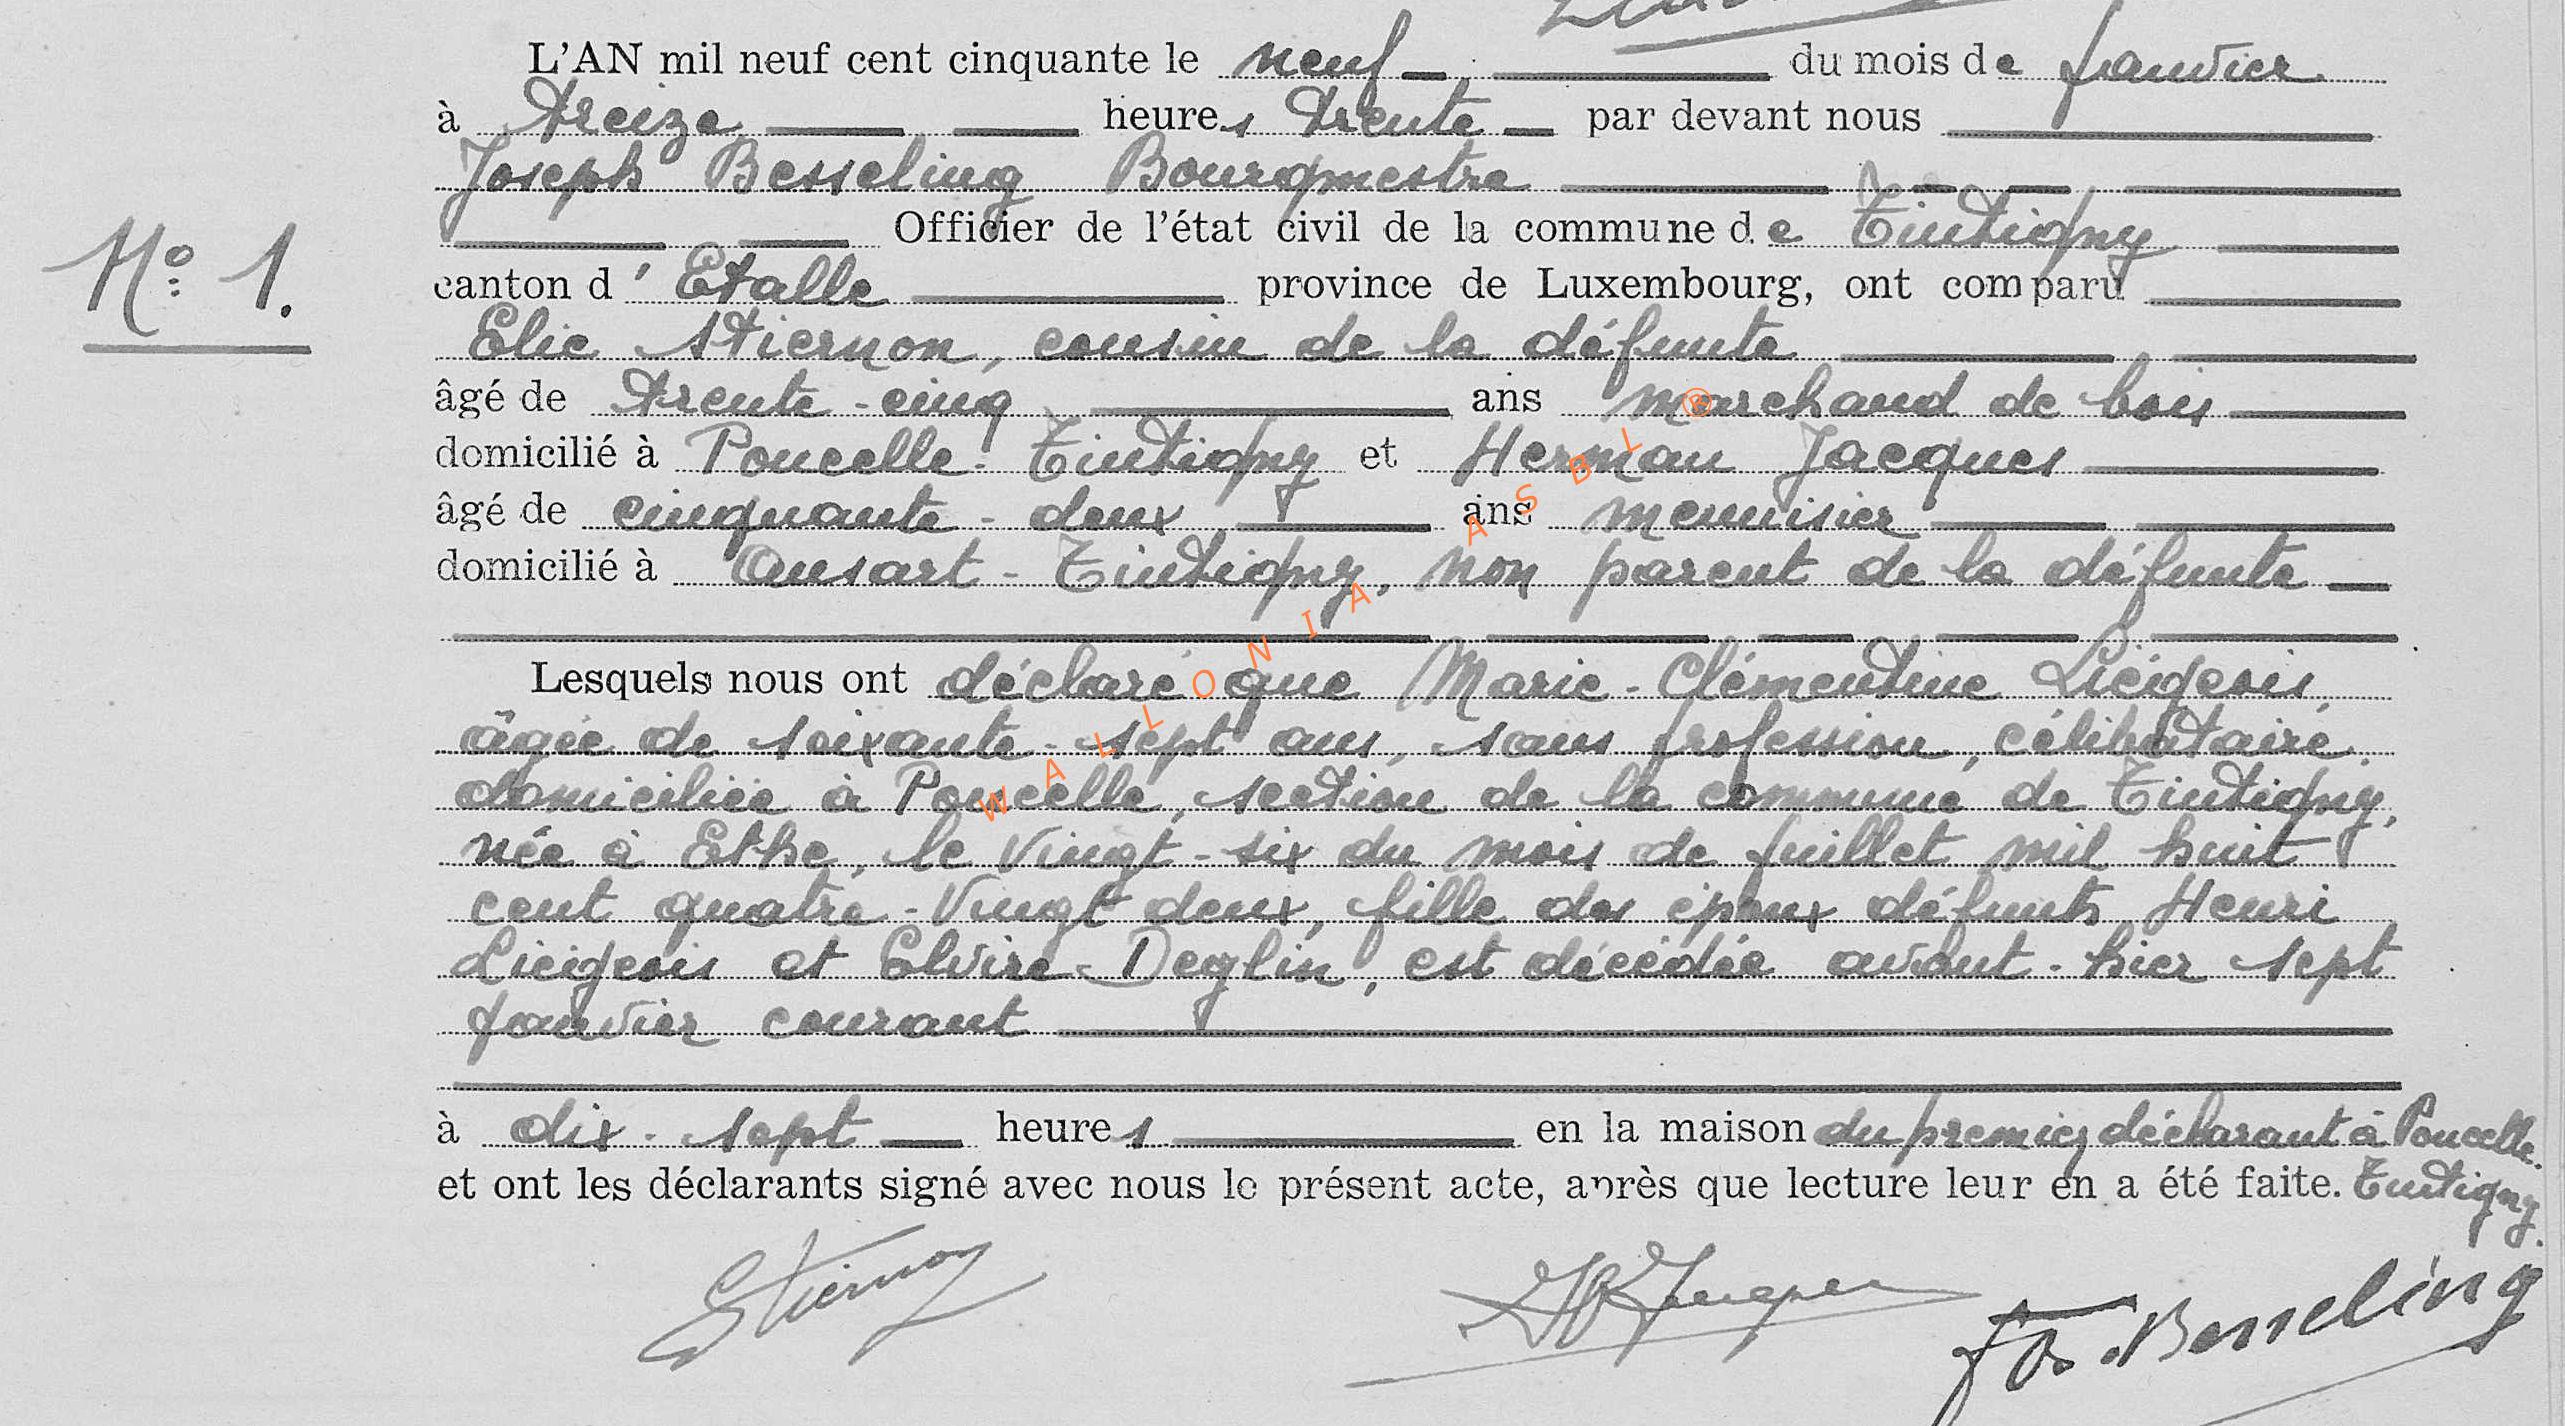 L'AN mil neuf cent cinquante le neuf du mois de janvier
à treize heures trente par devant nous
Joseph Besseling Bourgmestre
Officier de l'état civil de la commune de Tintigny
N° 1.
canton d'Etalle province de Luxembourg, ont comparu
Elie Stiernon, cousin de la défunte
âgé de trente-cinq ans marchand de bois
domicilié à Poncelle-Tintigny et Herman Jacques
âgé de cinquante-deux ans menuisier
domicilié à Ansart-Tintigny, non parent de la défunte
Lesquels nous ont déclaré que Marie-Clémentine Liégeois,
âgée de soixante-sept ans, sans profession, célibataire,
domiciliée à Poncelle, section de la commune de Tintigny,
née à Ethe, le vingt-six du mois de juillet mil huit
cent quatre-vingt deux, fille des époux défunts Henri
Liégeois et Elvire Deglin, est décédée avant-hier sept
janvier courant
à dix-sept heures en la maison du premier déclarant à Poncelle-
et ont les déclarants signé avec nous le présent acte, après que lecture leur en a été faite. Tintigny.
Stiernon
Jos. Besseling
WALLONIA ASBL ®